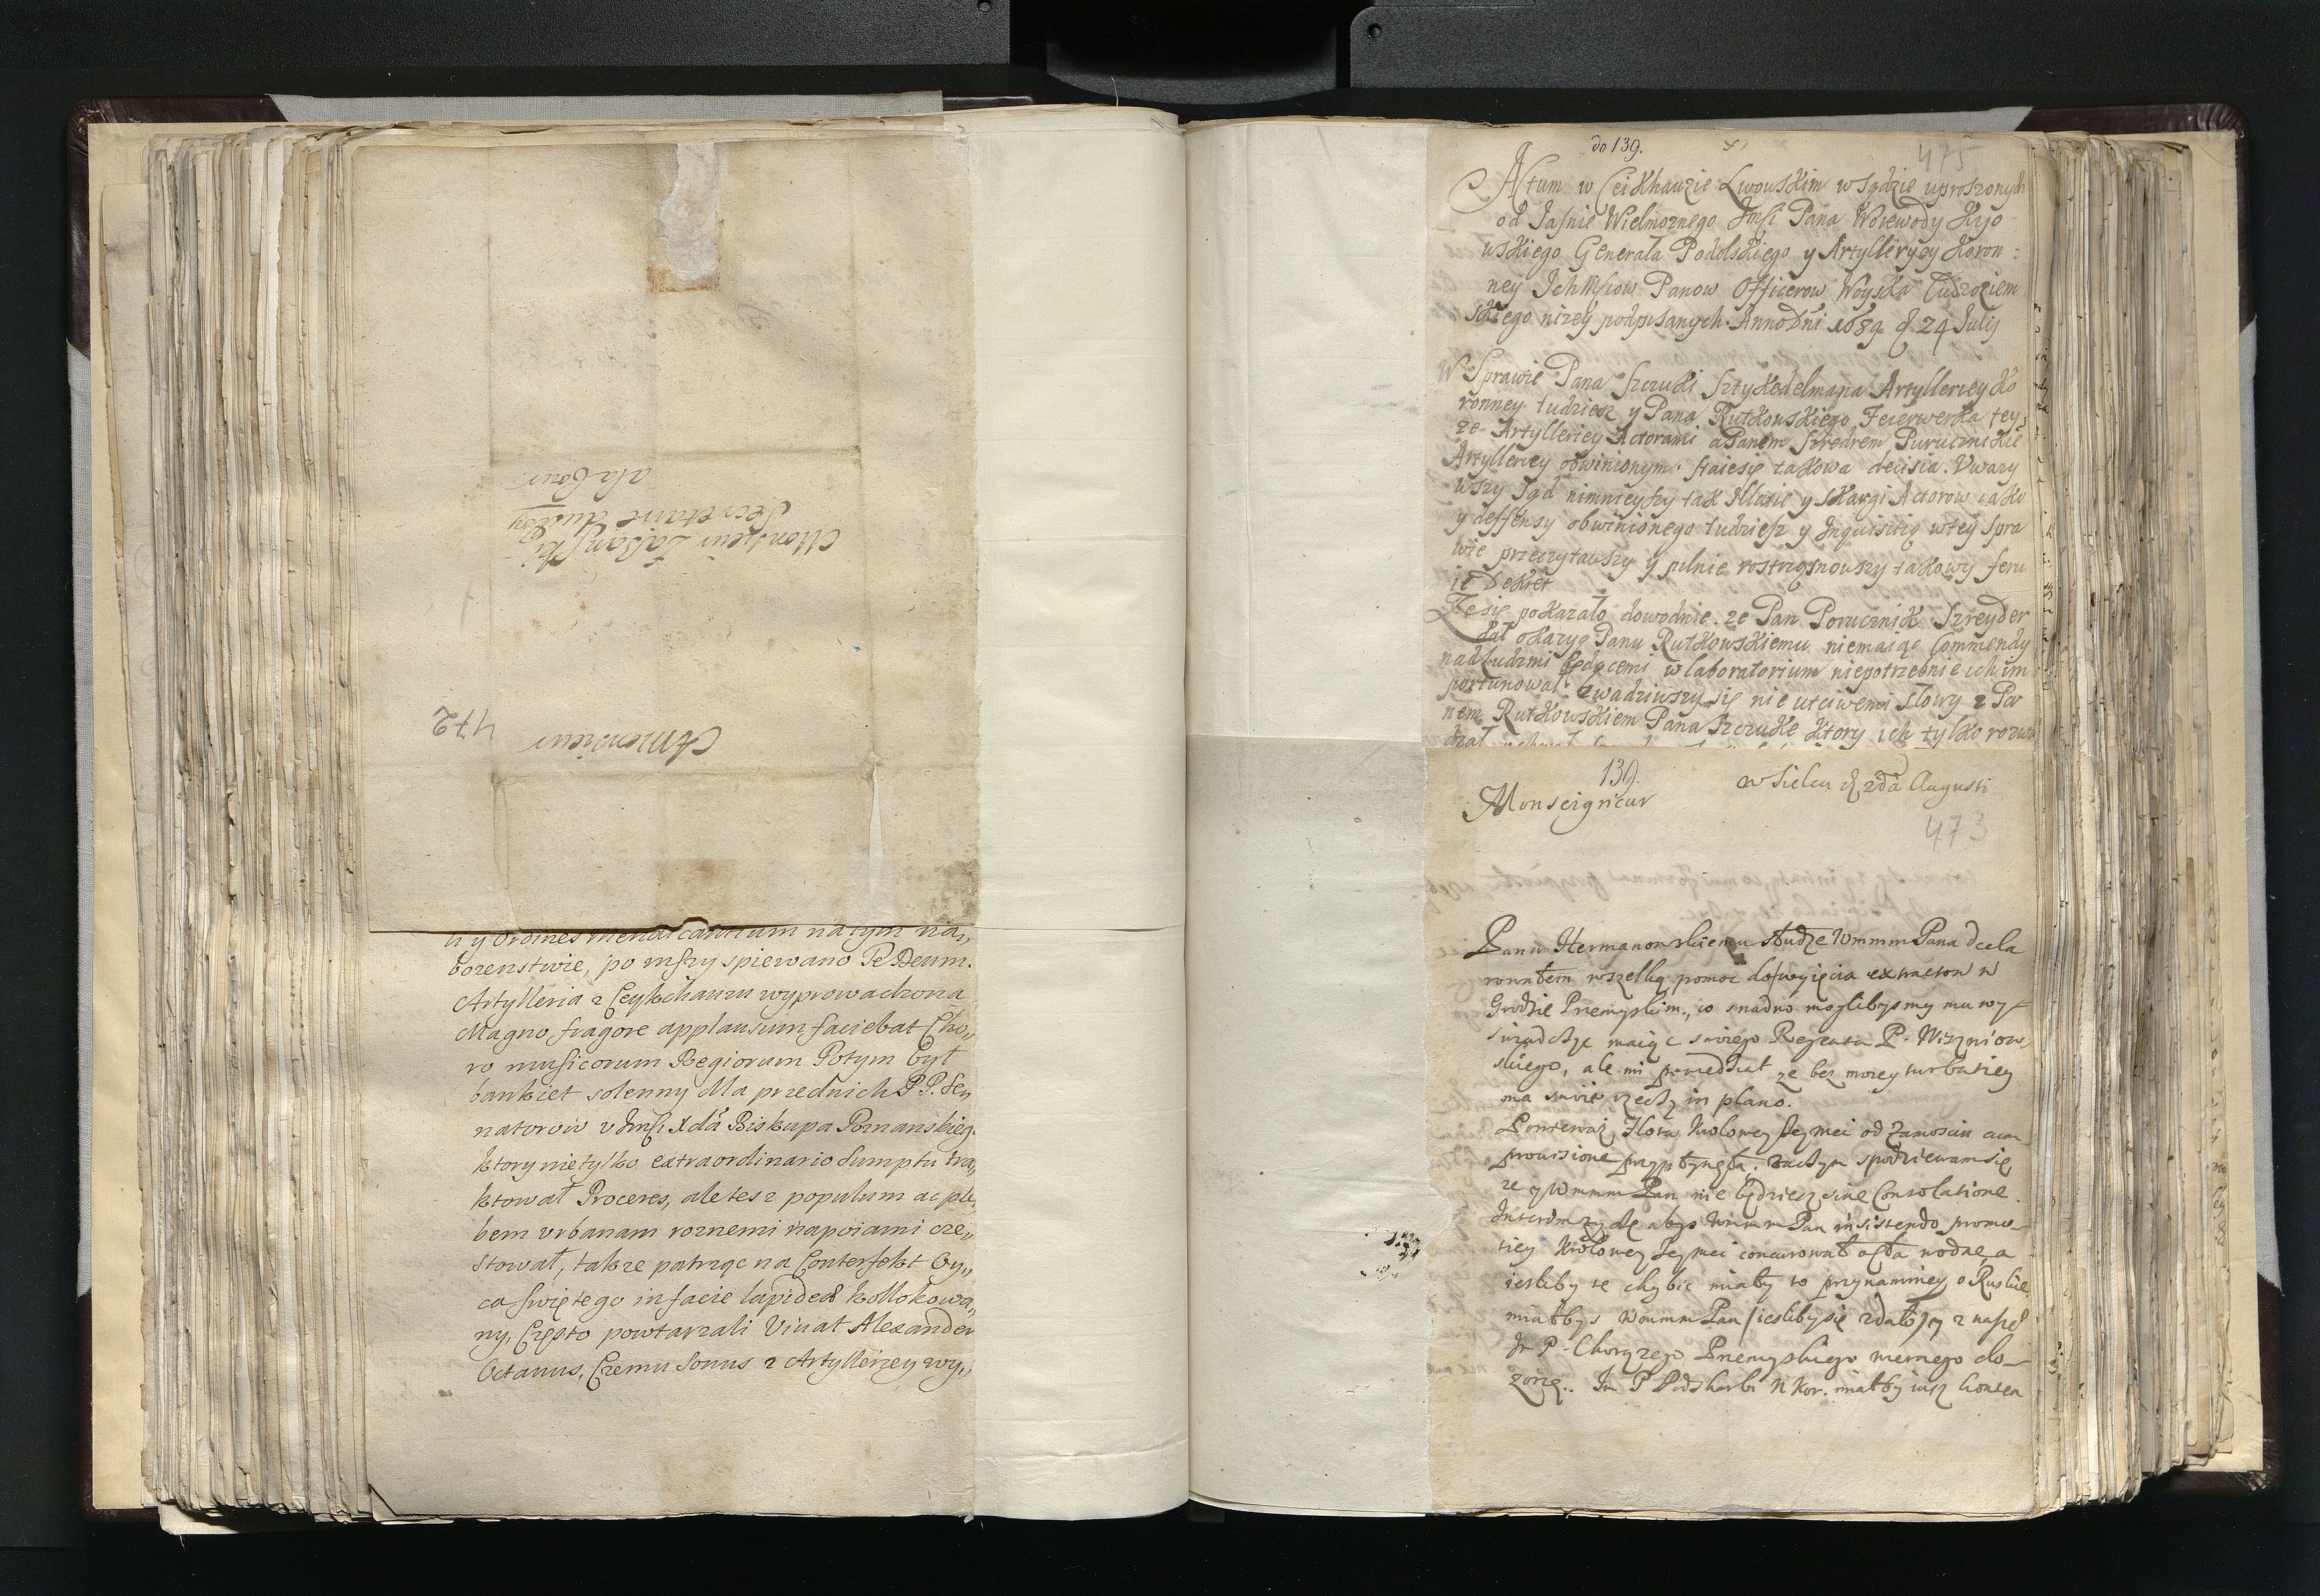 A Monsieur
472
Monsieur Załanski
Secretaire du Roy
a la Cour
borzenstwie, po mszy spiewano Te Deum.
Artylleria z Ceykhauzu wyprowadzona
Magno fragore applausum faciebat Cho„
ro musicorum Regiorum Potym był
bankiet solenny dla przednich P P. Sen
natorow v Jmsci Xdza Biskupa Poznanskieg.
ktory nietylko extraordinario sumptu tra„
ktował Proceres, ale tesz populum ac ple„
bem urbanam roznemi napoiami cze„
stował, takze patrząc na Conterfekt Oy„
ca swiętego in facie lapidea kollokowa„
ny, Często powtarzali Vivat Alexander
Octavus, Czemu Sonus z Artylleriey wy„
do 139.
475
Actum w Ceikhauzie Lwowskim w Sądzie uproszonych
od Jasnie Wielmoznego Jmsci Pana Woiewody Kyio
wskiego Generała Podolskiego y Artylleryey Koron:
ney Ichmsciow Panow Officerow Woyska Cudzoziem
skiego nizey podpisanych. Anno Dni 1689 d. 24 Julij
W Sprawie Pana Szczuki Sztykedelmana Artylleriey Ko
ronney tudziesz y Pana Rutkowskiego Feierwerka tey
ze Artylleriey Actorami a Panem Szredrem Porucznikie
Artylleriey obwinionym. staiesię takowa decisia. Uwazy
wszy Sąd ninieyszy tak Illatię y skargi Actorow iako
y deffensy obwinionego tudziesz y Inquisitią w tey Spra
wie przeczytawszy y pilnie rostrząsnowszy takowy feru
ie Dekret
Ze się pokazało dowodnie. ze Pan Porucznik Szreyder
dał okazyą Panu Rutkowskiemu niemaiąc Commendy
nad Ludzmi będącemi w laboratorium niepotrzebnie ich im
portunował. Zwadziwszy się nie utciwemi słowy z Pa
nem Rutkowskiem Pana Szczuke ktory ich tylko rozwa
139.
w Sielcu d 2da Augusti
Monseigneur
473
Panu Hermanowskiemu słudze Wmmm Pana dekla
rowałem wszelką pomoc do wyięcia extractow w
Grodzie Przemyskim, co snadno moglibysmy mu wy
swiadczyc maiąc swiego Regenta P. Wiszniow
skiego, ale mi powiedział ze bez moiey turbatiey
ma swoie rzeczy in plano.
Ponieważ Flota Krolowey Jeymci od Zamoscia cum
provisione przypłynęła. Zaczym spodziewam się
ze y Wmmm Pan nie będziesz sine Consolatione.
Interim zyczę abys Wmmm Pan insistendo promis
siey Krolowey Jeymci concurował
iesliby te chybic miały to przynamniey o Ruskie
miałbys Wmmm Pan /iesliby się zdało/ y z naszeg
Jm P. Chorązego Przemyskiego wiernego do
zorcę.. Jm P Podskarbi N Kor. miałby iusz